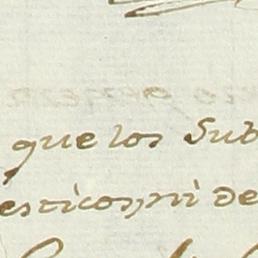 que los Sub
esticos, ni de